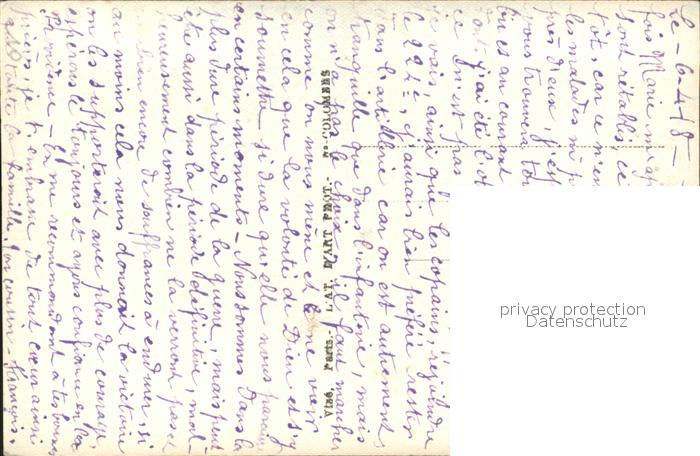 Le - 6-4-18 -
sont rétablis, ce
tôt, car ce n'en
les malades m
près d'eux, j'esp
vous trouvera tou
tous au courant
dont j'ai été l'ob
ce n'est pas
je vais ainsi que les copains, rejoindre
le 4 . 2 , j'aurais bien préféré rester
dans l'artillerie car on est autrement
tranquille que dans l'infanterie, mais
on n'a pas le choix, il faut marcher
comme on nous mène et ne voir
en cela que la volonté de Dieu et s'y
soumettre si dure qu'elle nous paraisse
en certains moments - Nous sommes dans la
plus dure période de la guerre, mais peut
être aussi dans la période définitive, mal-
heureusement combien ne la verront pas et
bien encore de souffrances à endurer, si
au moins cela nous donnait la victoire
on les supporterait avec plus de courage,
espérons le toujours et ayons confiance en la
Providence - En me recommandant à tes bonnes
prières je t'embrasse de tout cœur ainsi
que toute la famille, Ton cousin - François
Visé, Paris. - L'AT. D'ART PHOT. - Bs-COLOMBES
privacy protection
Datenschutz